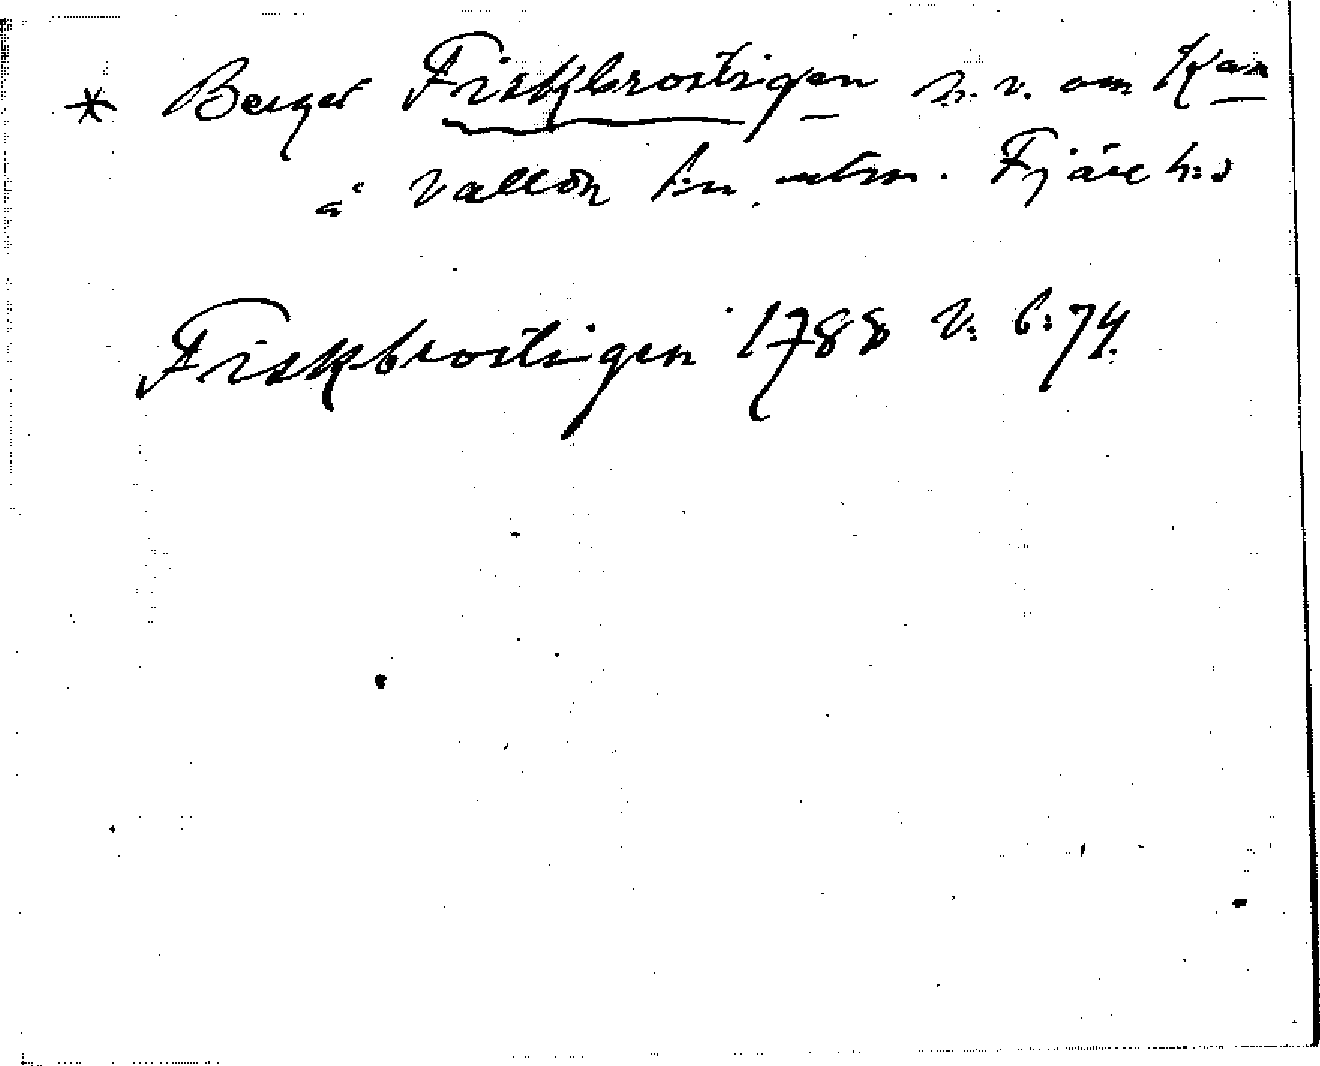 * Berget Fiskbrostigen n. v. om Kan
å Vallda sn utm. Fjäre hd
Fiskbrostigen 1788 v. 6:74.